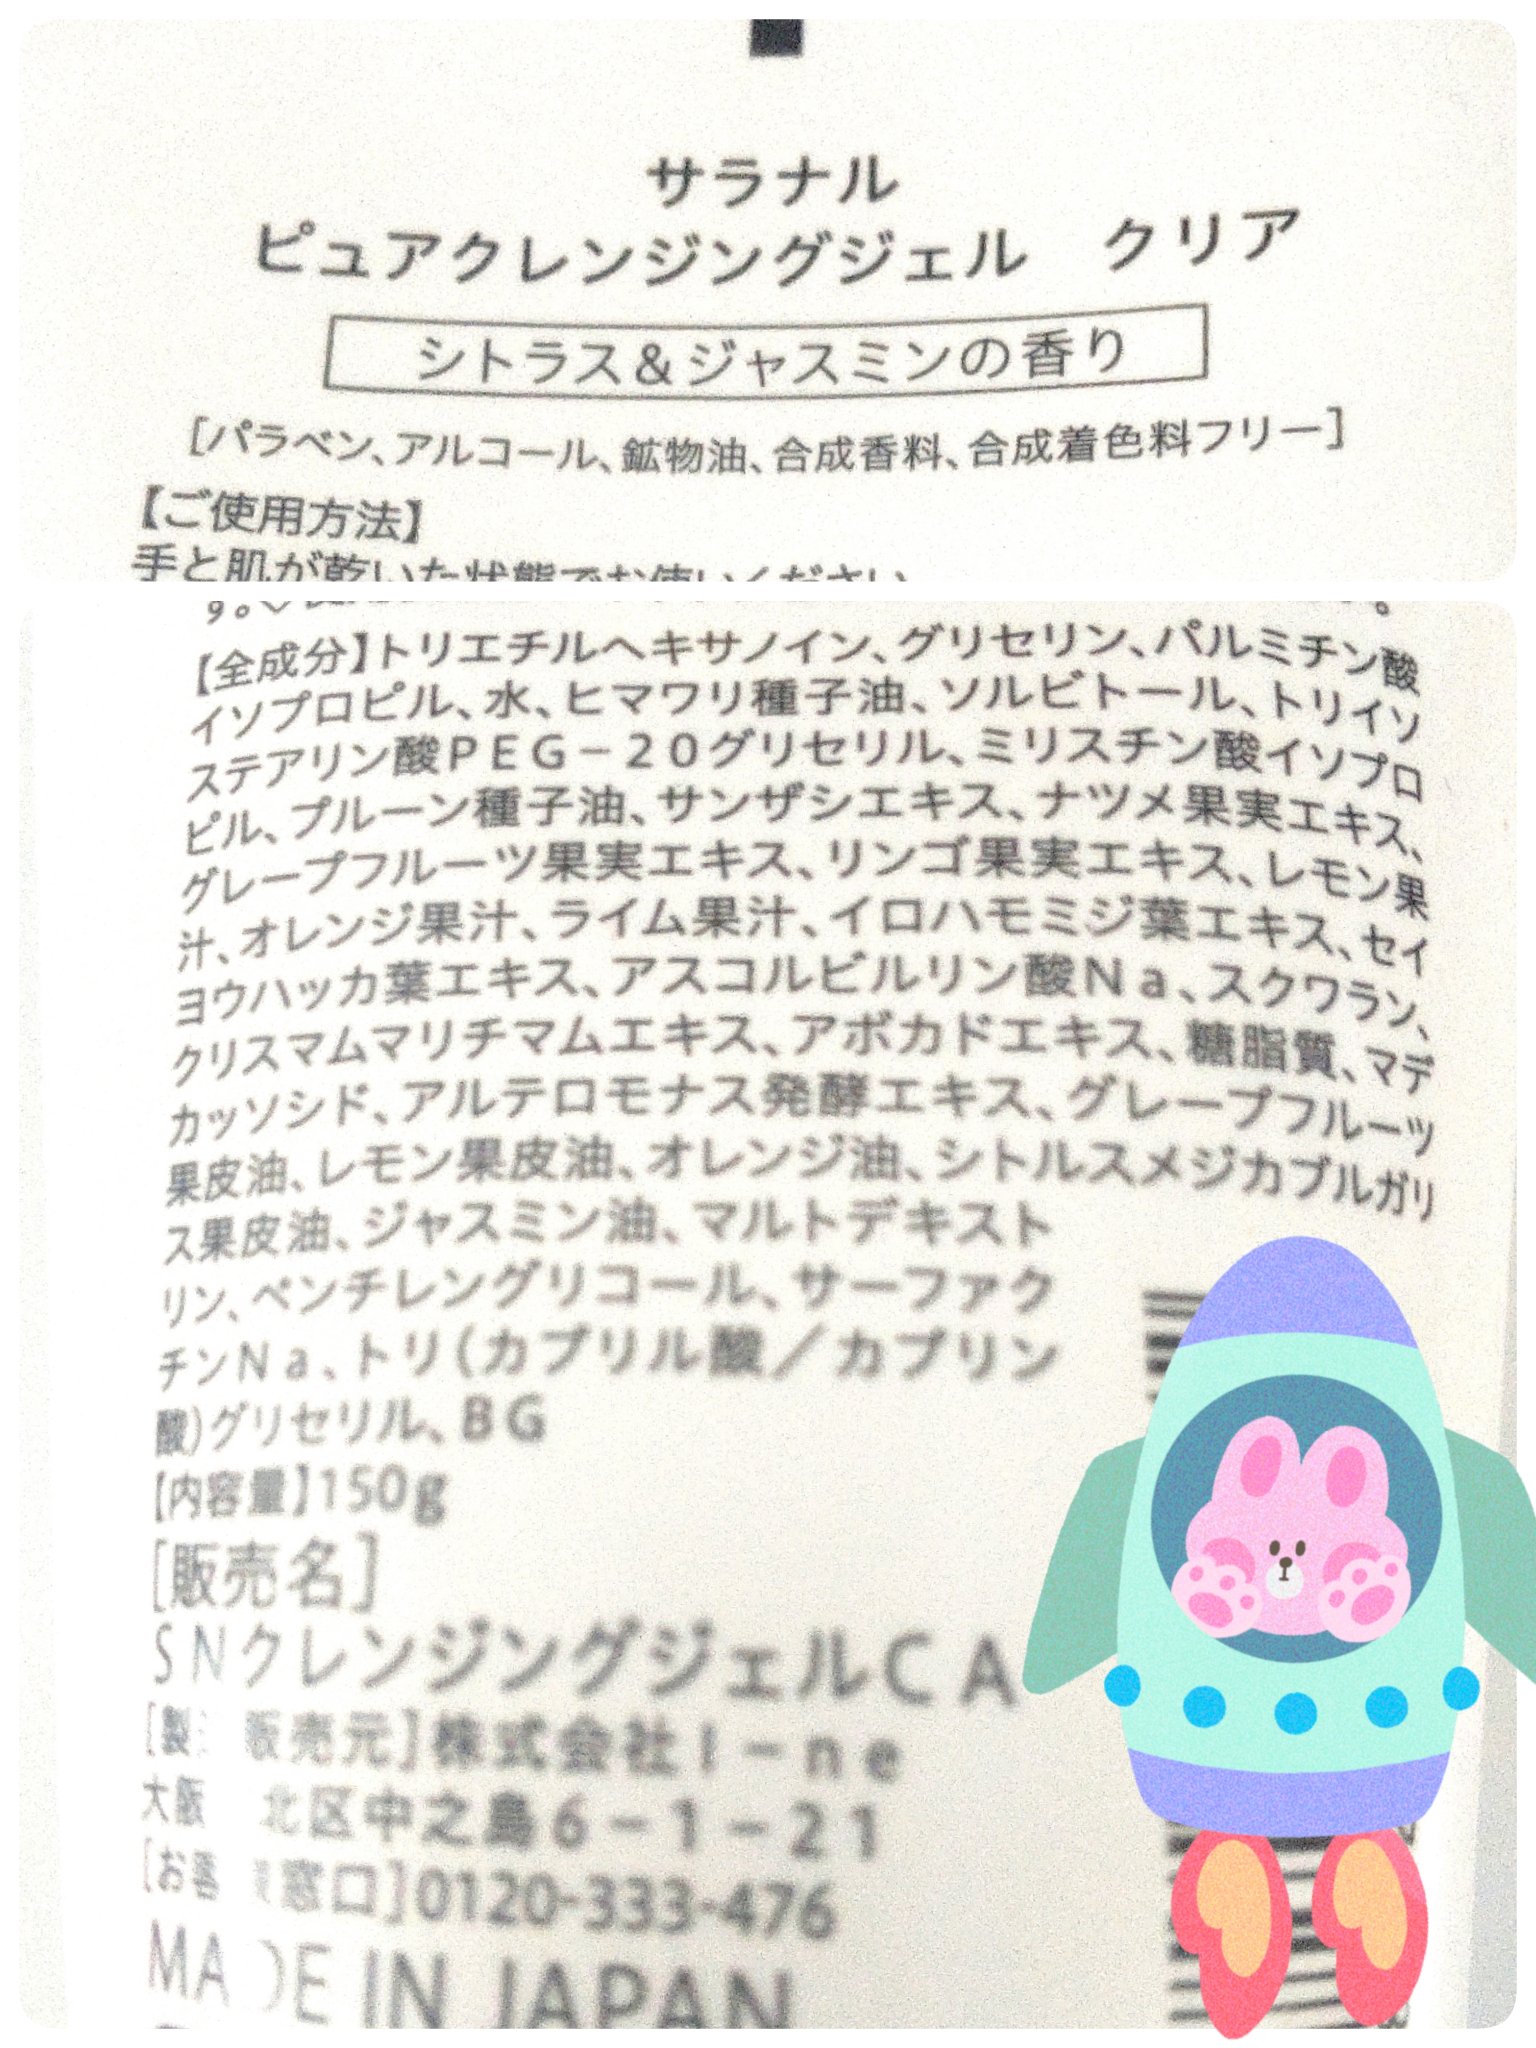 サラナル
ピュアクレンジングジェル　クリア
シトラス&ジャスミンの香り
[パラベン、アルコール、鉱物油、合成香料、合成着色料フリー]
【ご使用方法】
手と肌が乾いた状態でお使いください
す。
【全成分】トリエチルヘキサノイン、グリセリン、パルミチン酸
イソプロピル、水、ヒマワリ種子油、ソルビトール、トリイソ
ステアリン酸PEG－20グリセリル、ミリスチン酸イソプロ
ピル、プルーン種子油、サンザシエキス、ナツメ果実エキス、
グレープフルーツ果実エキス、リンゴ果実エキス、レモン果
汁、オレンジ果汁、ライム果汁、イロハモミジ葉エキス、セイ
ヨウハッカ葉エキス、アスコルビルリン酸Na、スクワラン、
クリスマムマリチマムエキス、アボカドエキス、糖脂質、マデ
カッソシド、アルテロモナス発酵エキス、グレープフルーツ
果皮油、レモン果皮油、オレンジ油、シトルスメジカブルガリ
ス果皮油、ジャスミン油、マルトデキスト
リン、ペンチレングリコール、サーファク
チンNa、トリ(カプリル酸／カプリン
酸)グリセリル、BG
【内容量】150g
[販売名]
SNクレンジングジェルCA
[製 販売元]株式会社I－ne
大阪 北区中之島6－1－21
[お客 窓口]0120-333-476
MADE IN JAPAN